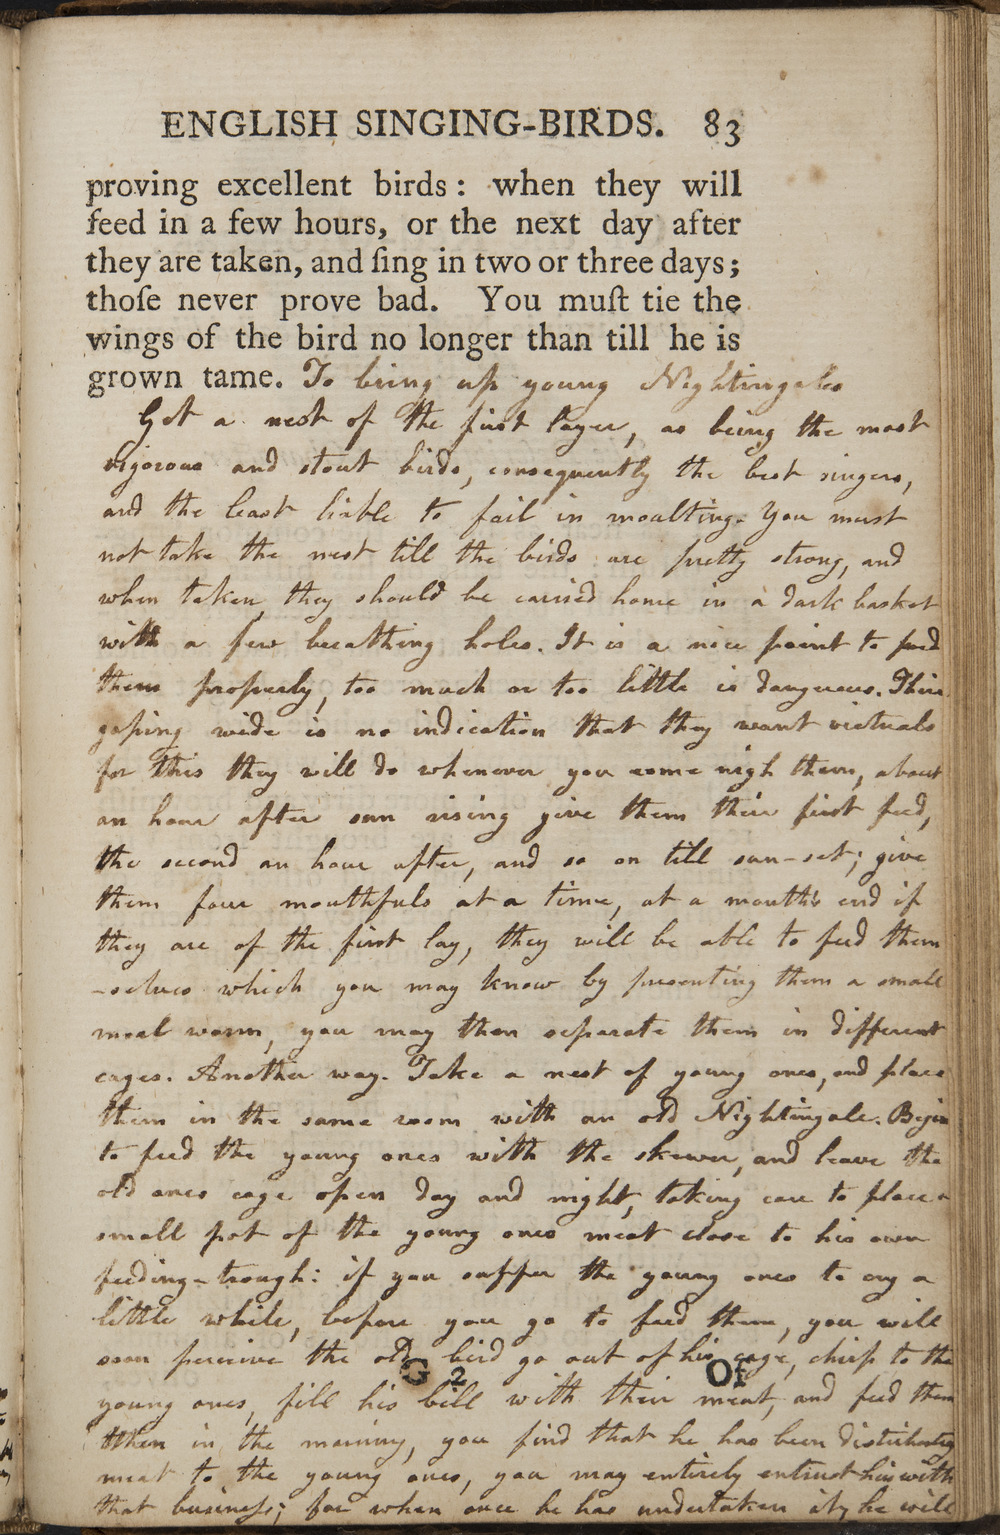 ENGLISH SINGING-BIRDS. 83
proving excellent birds: when they will
feed in a few hours, or the next day after
they are taken, and ſing in two or three days;
thoſe never prove bad. You muſt tie the
wings of the bird no longer than till he is
grown tame. To bring up young Nightingales
Get a nest of the first layer, as being the most
vigorous and stout birds, consequently the best singers,
and the least liable to fail in moulting. You must
not take the nest till the birds are pretty strong, and
when taken, they should be carried home in a dark basket
with a few breathing holes. It is a nice point to feed
them properly, too much or too little is dangerous. Their
gaping wide is no indication that they want victuals
for this they will do whenever you come nigh them, about
an hour after sun rising give them their first feed,
the second an hour after, and so on till sun-set; give
them four mouthfuls at a time, at a month's end if
they are of the first lay, they will be able to feed them
-selves which you may know by presenting them a small
meal worm, you may then separate them in different
cages. Another way. Take a nest of young ones, and place
them in the same room with an old Nightingale. Begin
to feed the young ones with the skewer, and leave the
old ones cage open day and night, taking care to place a
small pot of the young ones meat close to his own
feeding-trough: if you suffer the young ones to cry a
little while, before you go to feed them, you will
soon perceive the old bird go out of his cage, chirp to the
G 2 Of
young ones, fill his bill with their meat, and feed them
then in the morning, you find that he has been distributing
meat to the young ones, you may entirely entrust him with
that busineſs; for when once he has undertaken it, he will